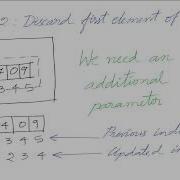 2: Discard first element of
4 0 9
3 4 5
We need an
additional
parameter
4 0 9
3 4 5
Previous
2 3 4
Updated